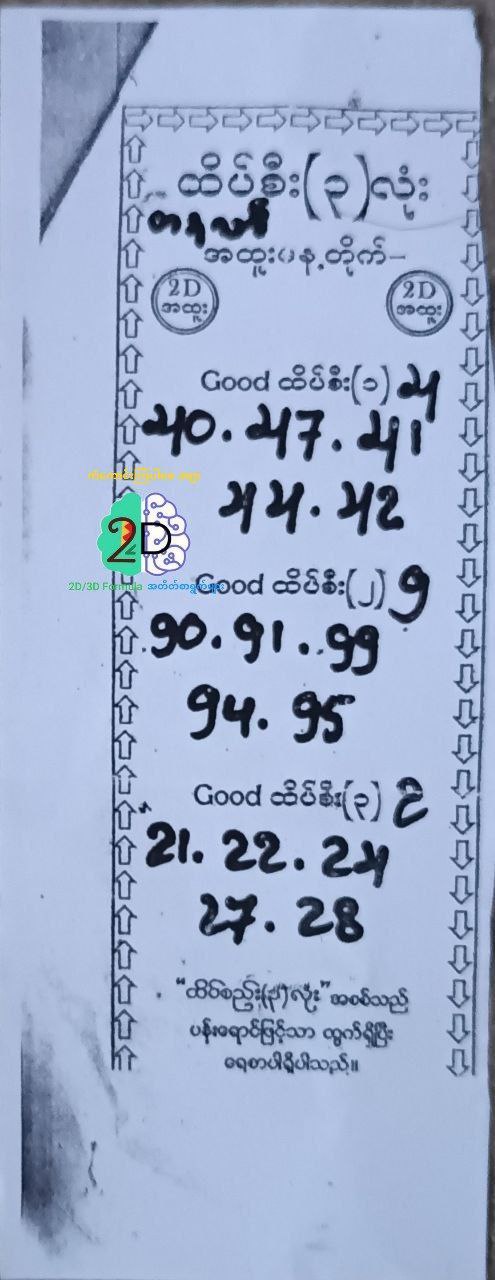 ထိပ်စီး(၃)လုံး
တနင်္လာ
အထူးပန့်တိုက်-
2D
အထူး
2D
အထူး
Good ထိပ်စီး(၁) 4
40. 47. 41
44. 42
2D
2D/3D Formula အတိတ်စာရွက်များ
Good ထိပ်စီး(၂) 9
90. 91. 99
94. 95
Good ထိပ်စီး(၃) 2
21. 22. 24
27. 28
"ထိပ်စည်း(၃)လုံး" အစစ်သည်
ပန်းရောင်ဖြင့်သာ ထွက်ရှိပြီး
ရေစာပါရှိပါသည်။